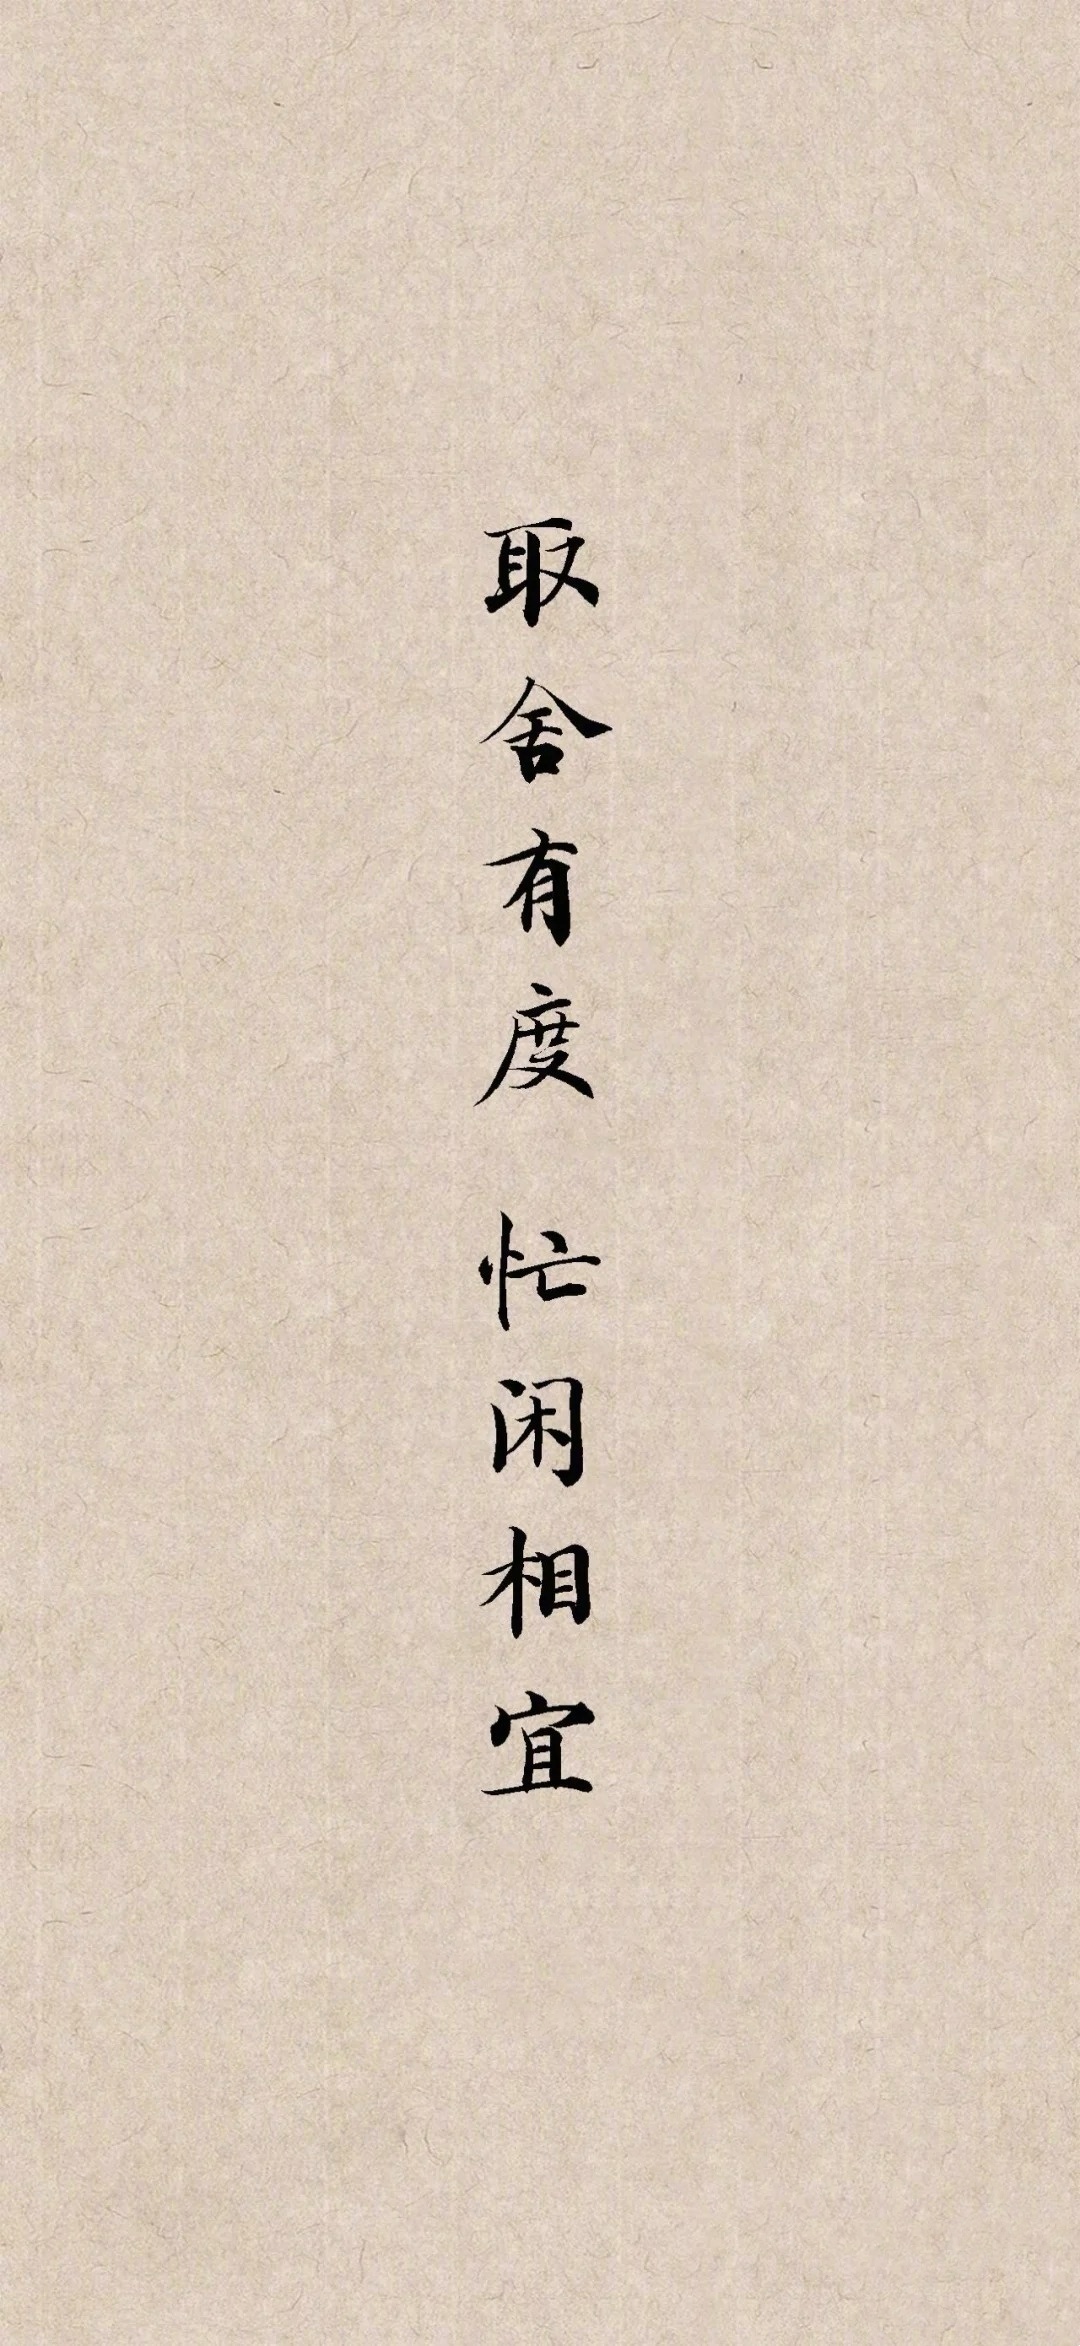 取舍有度 忙闲相宜